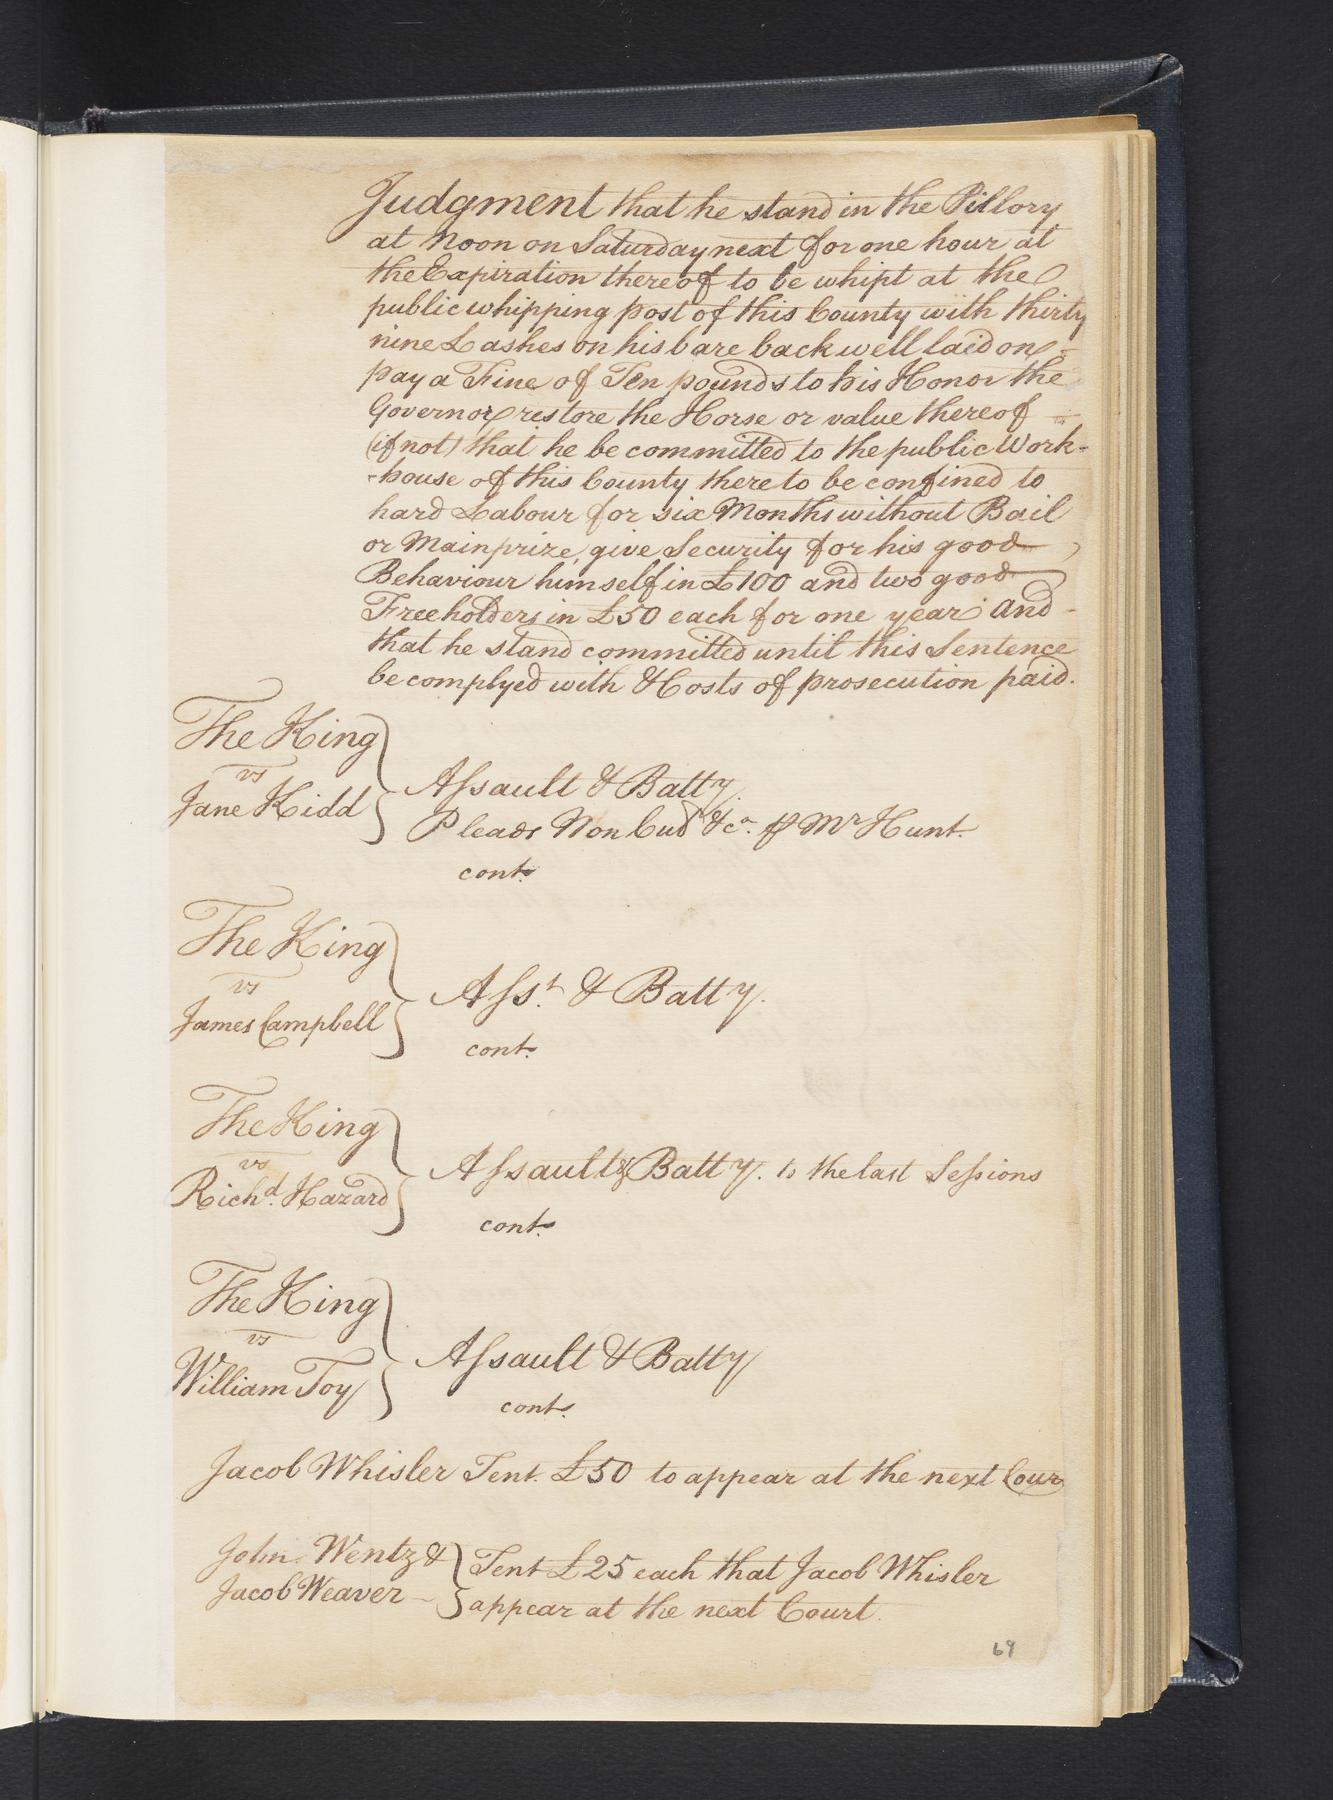 Judgment that he stand in the Pillory
at Noon on Saturday next for one hour at
the Expiration thereof to be whipt at the
public whipping post of this County with thirty
nine Lashes on his bare back well laid on
pay a Fine of Ten pounds to his Honor the
Governor restore the Horse or value thereof
(if not) that he be committed to the public Work-
-house of this County there to be confined to
hard Labour for six Months without Bail
or Mainprize, give Security for his good
Behaviour himself in £100 and two good
Freeholders in £50 each for one year and
that he stand committed until this Sentence
be complyed with & Costs of prosecution paid.
The King
vs
Jane Kidd
Assault & Batty.
Pleads Non Cul &ca. Mr Hunt.
cont.
The King
vs
James Campbell
Asst. & Batty.
cont.
The King
vs
Richd. Hazard
Assault & Batty. to the last Sessions
cont.
The King
vs
William Toy
Assault & Batty
cont.
Jacob Whisler Tent. £50 to appear at the next Cour
John Wentz &
Jacob Weaver
Tent £25 each that Jacob Whisler
appear at the next Court.
69